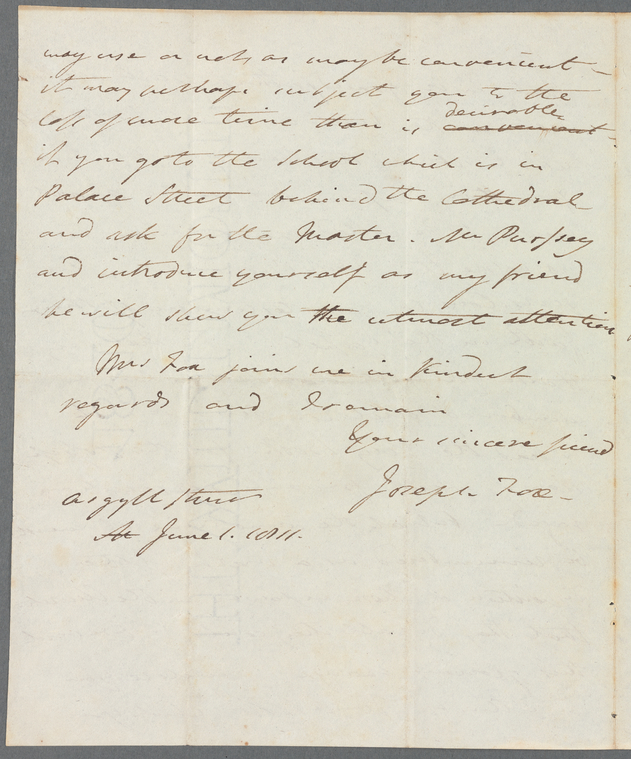 may use or not as may be convenient –
it may perhaps subject you to the
loss of more time than is convenient desirable
if you go to the School which is in
Palace Street behind the Cathedral
and ask for the Master. Mr Pussey
and introduce yourself as my friend
he will shew you the utmost attention
Mrs Fox joins me in kindest
regards and I remain
Your sincere friend
Joseph Fox –
Argyll Street
June 1. 1811.